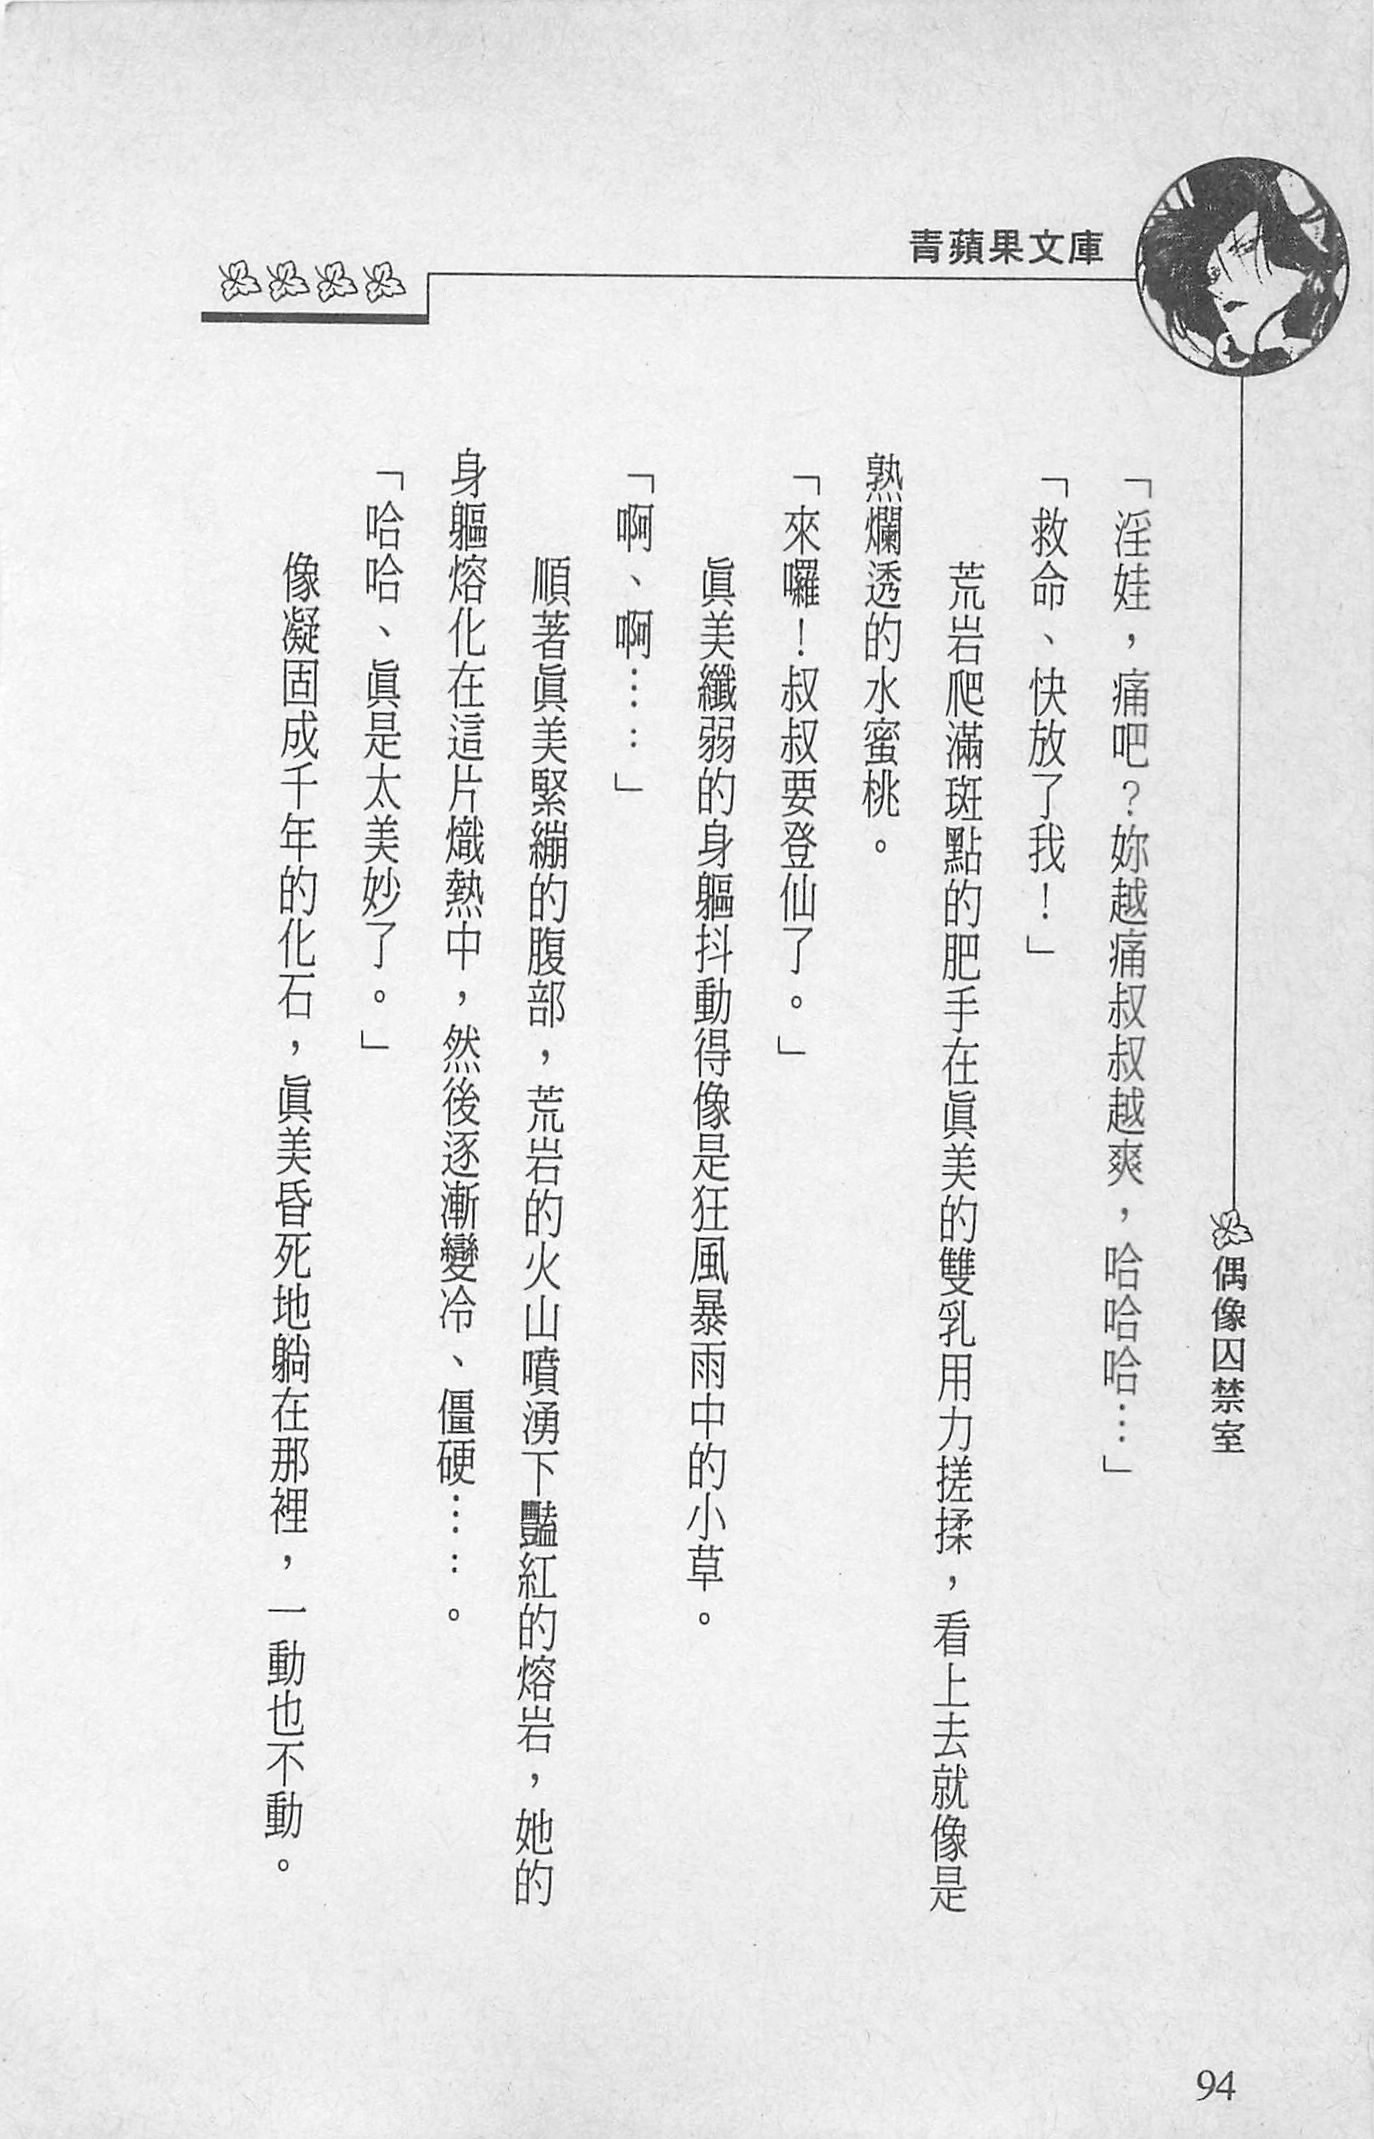 青蘋果文庫
偶像囚禁室
「淫娃，痛吧？妳越痛叔叔越爽，哈哈哈…」
「救命、快放了我！」
荒岩爬滿斑點的肥手在眞美的雙乳用力搓揉，看上去就像是
熟爛透的水蜜桃。
「來囉！叔叔要登仙了。」
眞美纖弱的身軀抖動得像是狂風暴雨中的小草。
「啊、啊……」
順著眞美緊繃的腹部，荒岩的火山噴湧下豔紅的熔岩，她的
身軀熔化在這片熾熱中，然後逐漸變冷、僵硬……。
「哈哈、眞是太美妙了。」
像凝固成千年的化石，眞美昏死地躺在那裡，一動也不動。
94